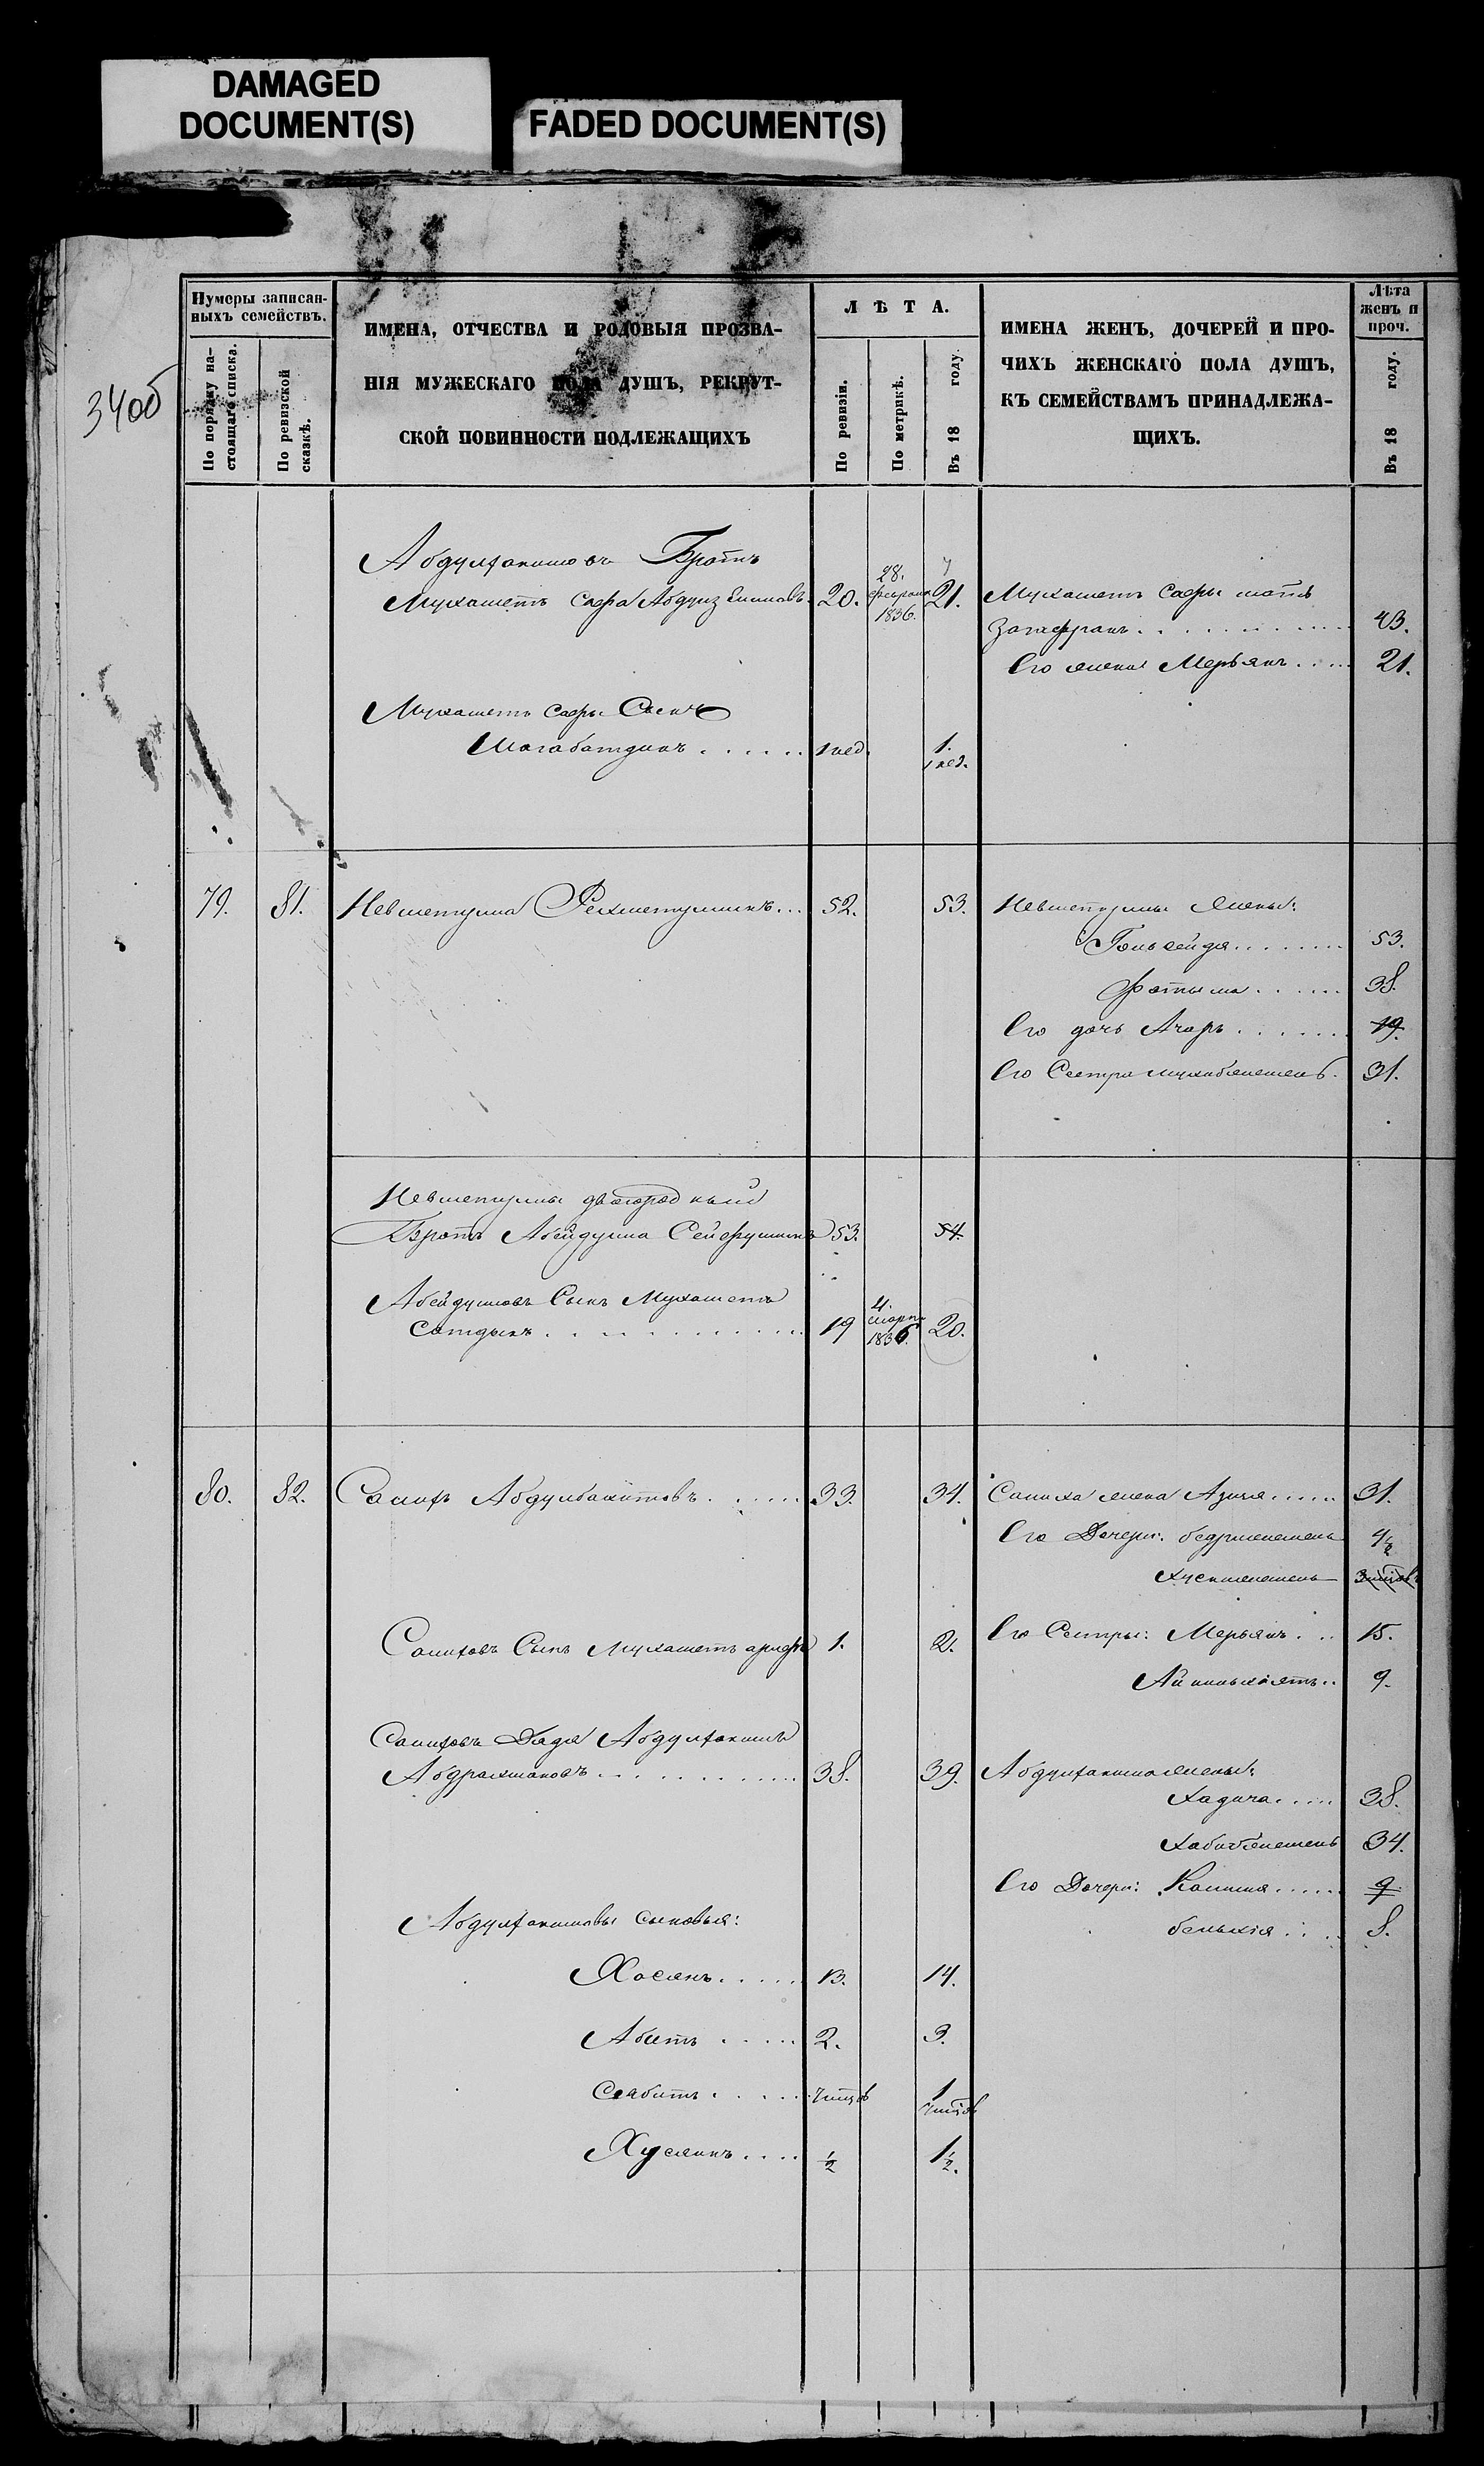 DAMAGED
DOCUMENT(S)
FADED DOCUMENT(S)
340об
Нумеры записан-
ныхъ семействъ.
По порядку на-
стоящаго списка.
По ревизской
сказкѣ.
ИМЕНА, ОТЧЕСТВА И РОДОВЫЯ ПРОЗВА-
НІЯ МУЖЕСКАГО ПОЛА ДУШЪ, РЕКРУТ-
СКОЙ ПОВИННОСТИ ПОДЛЕЖАЩИХЪ
ЛѢТА.
По ревизіи.
По метрикѣ.
Въ 18 году.
ИМЕНА ЖЕНЪ, ДОЧЕРЕЙ И ПРО-
ЧИХЪ ЖЕНСКАГО ПОЛА ДУШЪ,
КЪ СЕМЕЙСТВАМЪ ПРИНАДЛЕЖА-
ЩИХЪ.
Лѣта
женъ и
проч.
Въ 18 году.
Абдулхакимовъ Братъ
Мухаметъ Сафа 20. 28. февраля 1836. 21. Мухаметъ Сафы мать
43.
Его жена Мерьямъ 21.
Мухаметъ Сафы Сынъ
Шагабатдинъ 1 нед. 1. 1 нед.
79. 81. Невметулла Рехметуллинъ 52. 53. Невметуллы жены:
53.
Фатыма 38.
Его дочь 19.
Его Сестра 31.
Невметуллы двоюродный
Братъ Абейдулла Сейфуллинъ 53. 54.
Абейдулловъ Сынъ Мухаметъ
Сатдыкъ 19 4. марта 1836. 20.
80. 82. Салихъ 33. 34. Салиха жена Азиля 31.
Его Дочери: 4 1/2
Салиховъ Сынъ Мухаметъ арифъ 1. 2. Его Сестры: Мерьямъ 15.
9.
Салиховъ Дядя Абдулхакимъ
Абдрахмановъ 38. 39. Абдулхакима жены:
Хадича 38.
34.
Его Дочери: Калима 9
8.
Абдулхакимовы сыновья:
Хасянъ 13. 14.
Абитъ 2. 3.
Сябитъ 1
Хусяинъ 1/2 1 1/2.